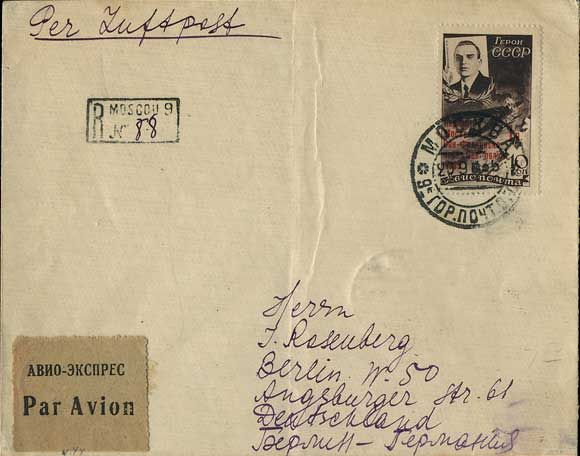 Per Luftpost
R MOSCOU 9
№ 88
ГЕРОИ
СССР
10
КОП
АВИОПОЧТА
МОСКВА
9 ГОР.ПОЧТ.
АВИО-ЭКСПРЕС
Par Avion
Herrn
J. Rosenberg
Berlin. W. 50
Augsburger Str. 61
Deutschland
Берлин – Германия